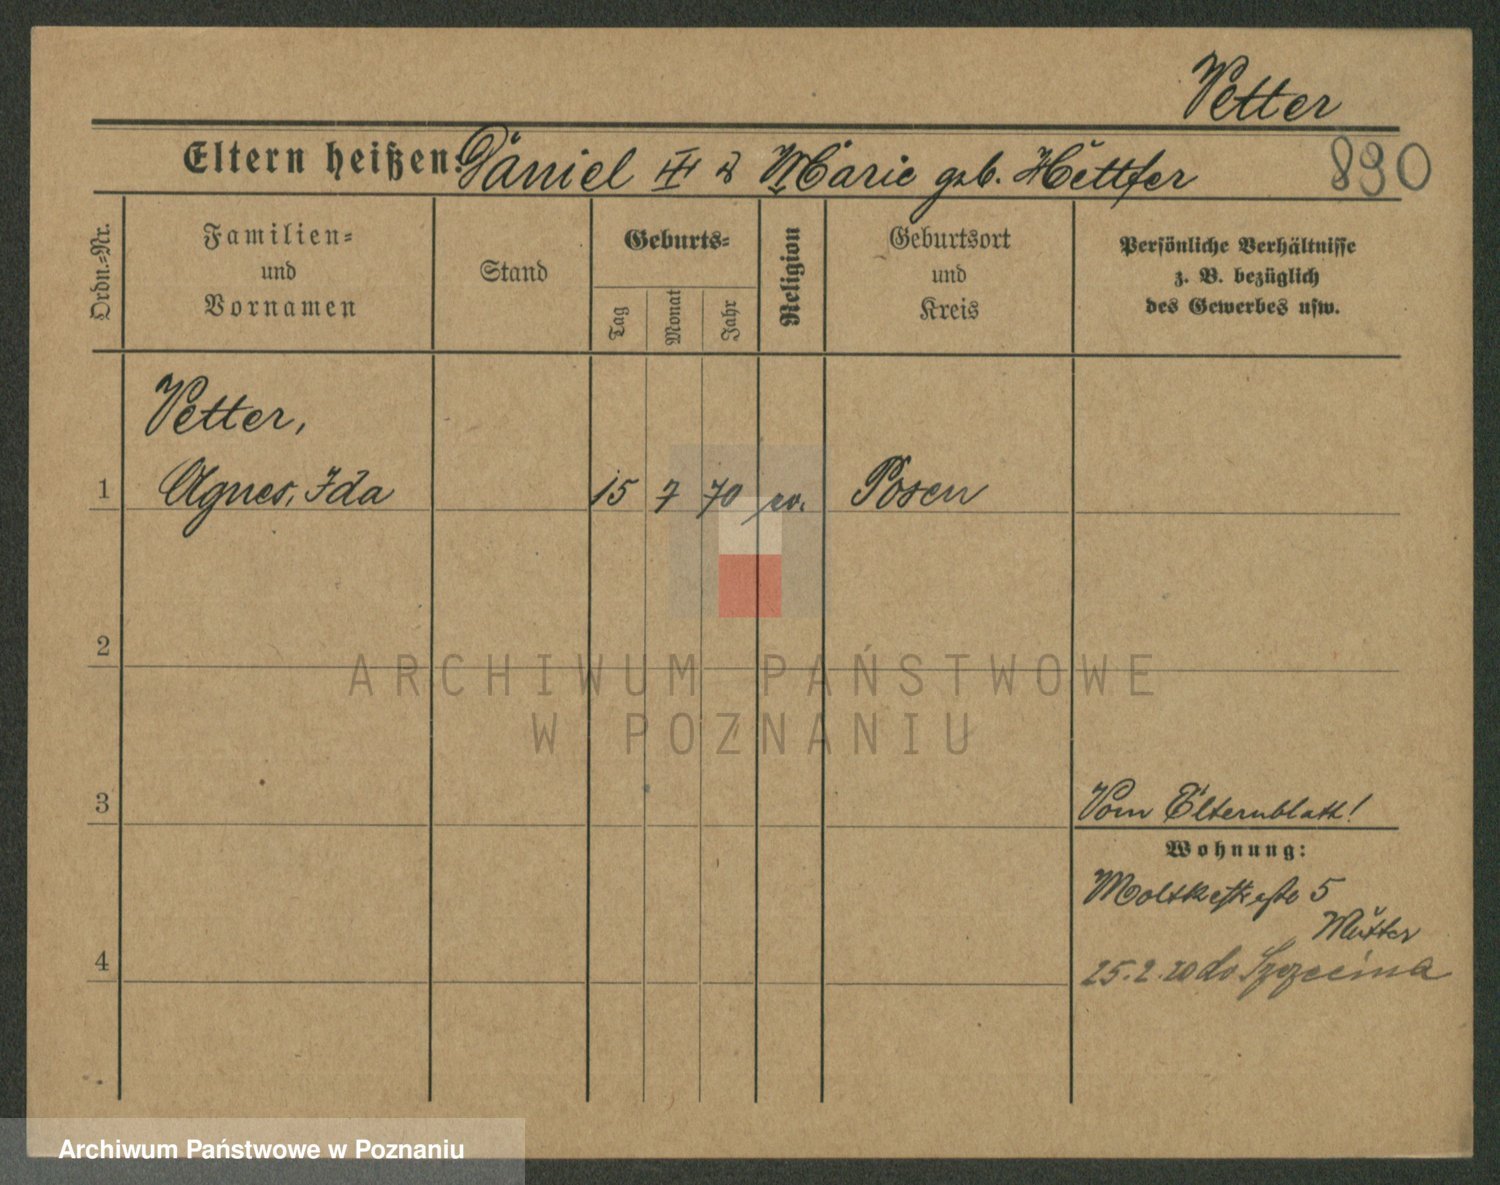 Vetter
Eltern heißen: Daniel III & Marie geb. Hettfer
890
Ordn.=Nr.
Familien=
und
Vornamen
Stand
Geburts=
Tag
Monat
Jahr
Religion
Geburtsort
und
Kreis
Persönliche Verhältnisse
z. B. bezüglich
des Gewerbes usw.
Vetter,
1 Agnes, Ida 15 7 70 ev. Posen
2
3
Vom Elternblatt!
Wohnung:
Moltkestraße 5
Mutter
4
25.2.20 do Szczecina
ARCHIWUM PAŃSTWOWE
W POZNANIU
Archiwum Państwowe w Poznaniu